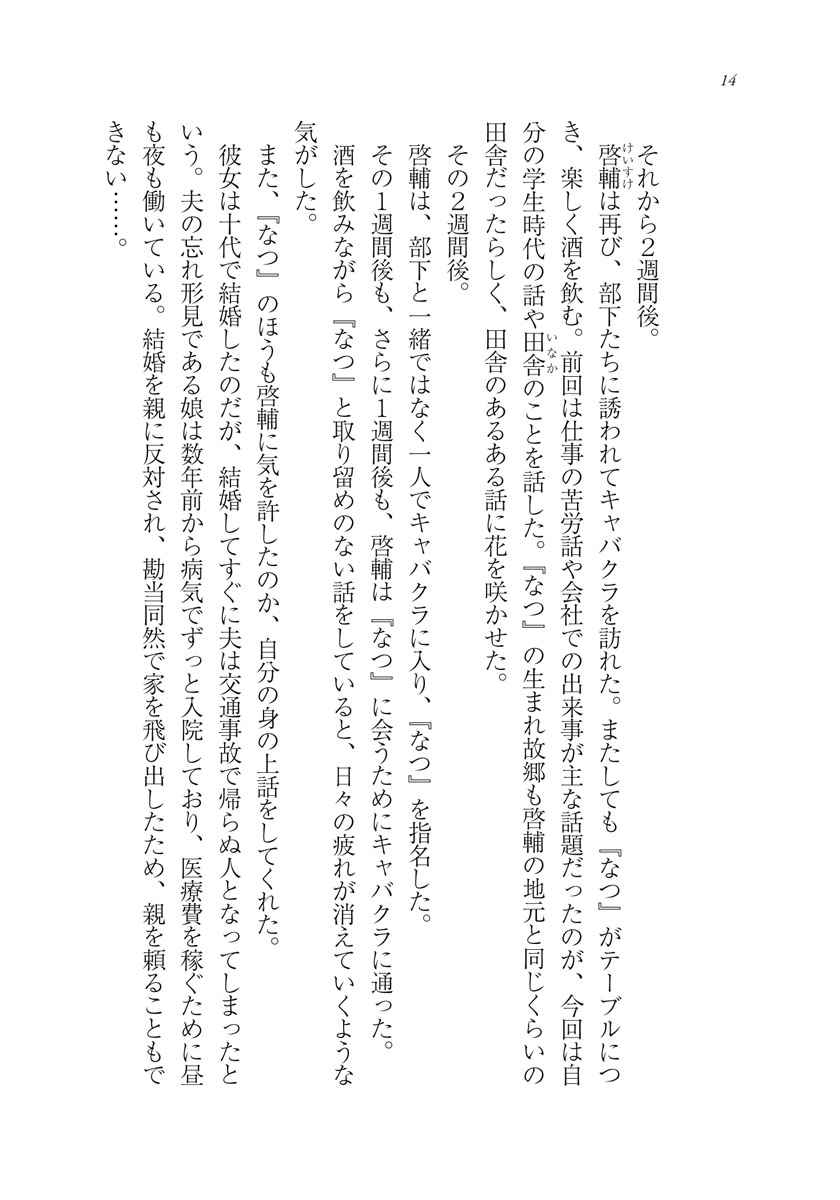 14
それから２週間後。
啓輔は再び、部下たちに誘われてキャバクラを訪れた。またしても『なつ』がテーブルにつ
き、楽しく酒を飲む。前回は仕事の苦労話や会社での出来事が主な話題だったのが、今回は自
分の学生時代の話や田舎のことを話した。『なつ』の生まれ故郷も啓輔の地元と同じくらいの
田舎だったらしく、田舎のあるある話に花を咲かせた。
その２週間後。
啓輔は、部下と一緒ではなく一人でキャバクラに入り、『なつ』を指名した。
その１週間後も、さらに１週間後も、啓輔は『なつ』に会うためにキャバクラに通った。
酒を飲みながら『なつ』と取り留めのない話をしていると、日々の疲れが消えていくような
気がした。
また、『なつ』のほうも啓輔に気を許したのか、自分の身の上話をしてくれた。
彼女は十代で結婚したのだが、結婚してすぐに夫は交通事故で帰らぬ人となってしまったと
いう。夫の忘れ形見である娘は数年前から病気でずっと入院しており、医療費を稼ぐために昼
も夜も働いている。結婚を親に反対され、勘当同然で家を飛び出したため、親を頼ることもで
きない……。
けいすけ
いなか